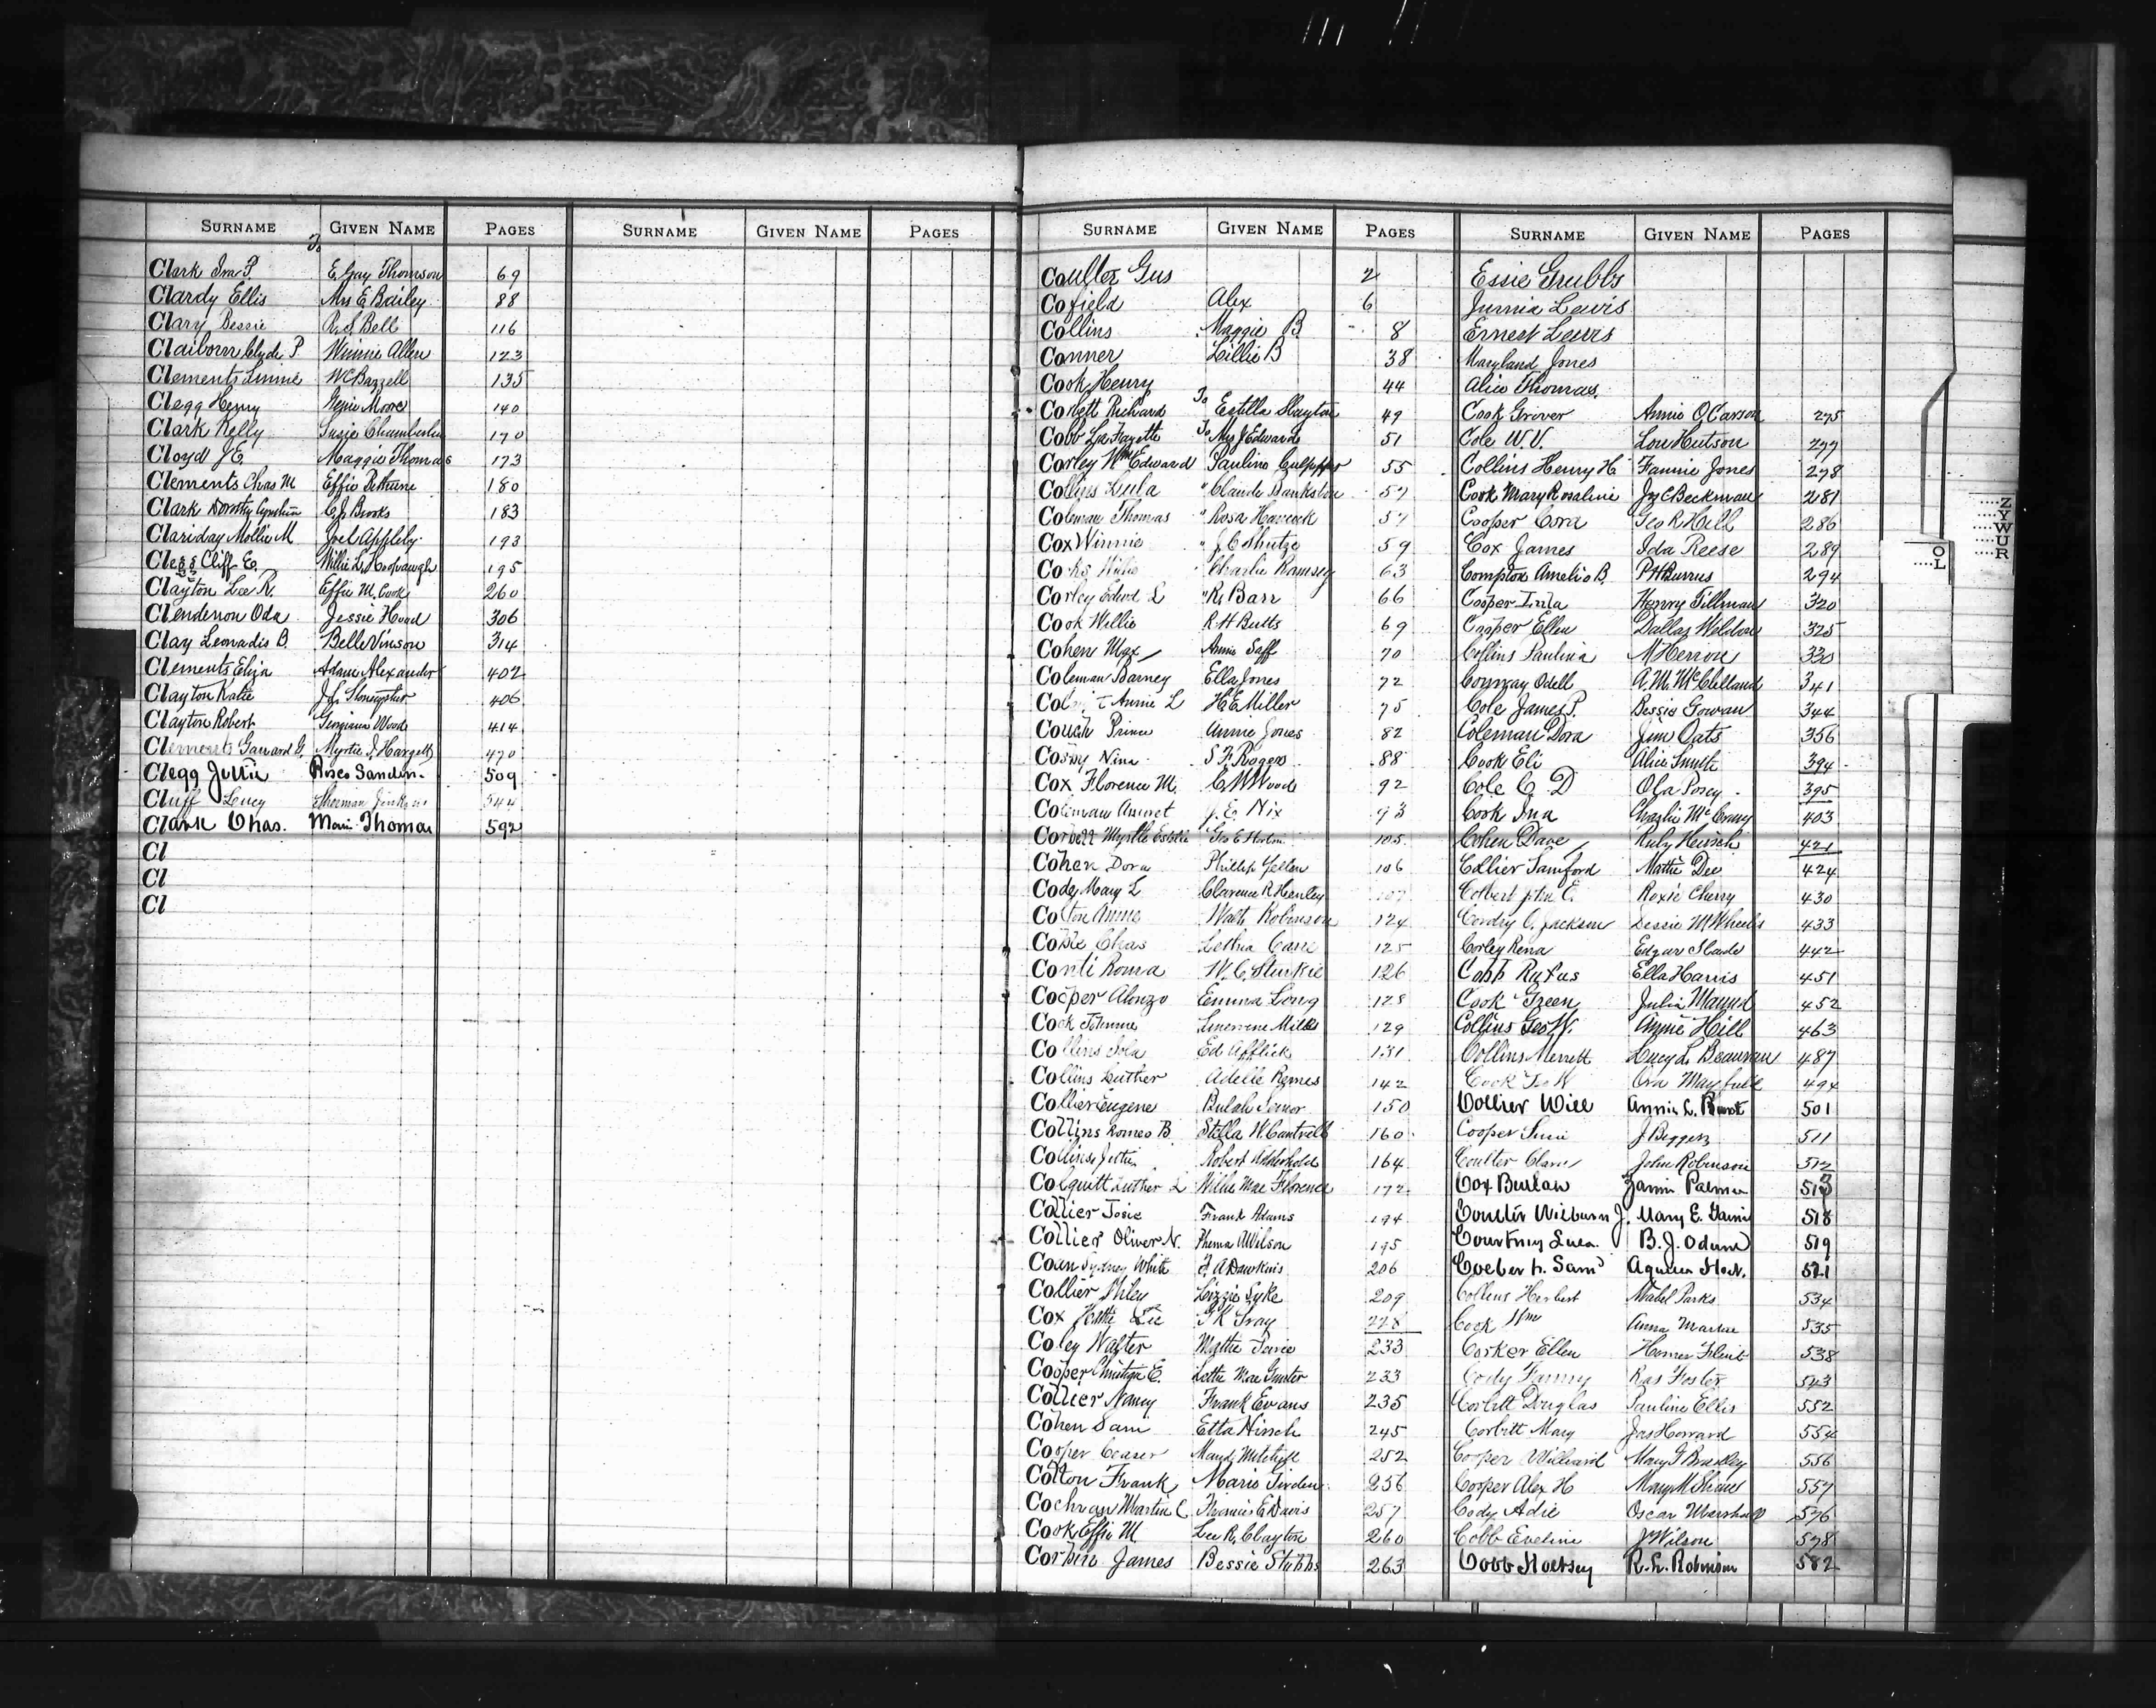 SURNAME GIVEN NAME PAGES SURNAME GIVEN NAME PAGES
To
Clark Ira P. E. Gay Thomson 69
Clardy Ellis Mrs E Bailey 88
Clary Bessie R. S. Bell 116
Claiborn Clyde P. Winnie Allen 123
Clements Linnie W C Bazzell 135
Clegg Henry Moore 140
Clark Kelly Susie Chamberlin 170
Cloyd J. E. Maggie Thomas 173
Clements Chas M Effie Pethune 180
Clark Dorothy C. J. Brooks 183
Clariday Mollie M Joel Appleby 193
Clegg Cliff E. Willie L. 195
Clayton Lee R. Effie M. Cook 260
Clendenon Oda Jessie Hood 306
Clay Leonadis B. Belle Vinson 314
Clements Eliza Adam Alexander 402
Clayton Katie 406
Clayton Robert Georgiana Wood 414
Clements Garrard G. Myrtie I. Hargett 470
Clegg Juttie Rosco Sanders 509
Cluff Lucy Sherman Jenkins 544
Clark Chas. Thomas 592
Cl
Cl
Cl
SURNAME GIVEN NAME PAGES SURNAME GIVEN NAME PAGES
Coulter Gus 2 Essie Grubbs
Cofield Alex 6 Junnia Lewis
Collins Maggie B. 8 Ernest Lewis
Conner Lillie B 38 Maryland Jones
Cook Henry 44 Alice Thomas.
Corbett Richard To Estilla Slayton 49 Cook Grover Annie O. Carson 275
Cobb La Fayette To Mrs J Edwards 51 Cole W. V. Lou Hutson 277
Corley Wm Edward Pauline Culpepper 55 Collins Henry H. Fannie Jones 278
Collins Lula " Claude Bankston 57 Cook Mary Rosaline Jos C Beckman 281
Coleman Thomas " Rosa Hancock 57 Cooper Cora Geo R. Hill 286
Cox Winnie " J. C. Shutze 59 Cox James Ida Reese 289
Charlie Ramsey 63 Compton Amelio B. P H Burrus 294
Corley Edwd L " R. Barr 66 Cooper Lula Henry Tillman 320
Cook Willie R H Butts 69 Cooper Ellen Dallas Weldon 325
Cohen Max Annie Saff 70 Collins Paulina M Herron 330
Coleman Barney Ella Jones 72 Conway Odell A. M. McClelland 341
Annie L H. E Miller 75 Cole James P. Bessie Gowan 344
Couch Prince Annie Jones 82 Coleman Dora Jim Oats 356
Cosby Nina S F. Rogers 88 Cook Eli Alice Smith 394
Cox Florence M. C W Wood 92 Cole C. D Ola Posey 395
Coleman J. E. Nix 93 Cook Ina Charlie McCrary 403
Corbett Myrtle Estelle Geo E 105 Cohen Dave Ruby Hirsch 421
Cohen Dora Phillip Yellen 106 Collier Samford Mattie Dee 424
Cody Mary L Clarence R Henley 107 Colbert John E. Roxie Cherry 430
Colton Annie Walt Robinson 124 Cordry C. Jackson Dessie M Wheelis 433
Coble Chas Lethia Cane 125 Corley Rena Edgar Slade 442
Conti Roma W. C. Sturkie 126 Cobb Rufus Ella Harris 451
Cooper Alonzo Emma Long 128 Cook Green Julia Maynd 452
Cook Johnnie Mills 129 Collins Geo W. Annie Hill 463
Collins Iola Ed Afflick 131 Collins Merrett Lucy L. Beauman 487
Collins Luther Adelle Reymes 142 Cook Geo W Ora Mayfield 494
Collier Eugene Bulah Senior 150 Collier Will Annie L. 501
Collins Romeo B. Stella W. Cantrell 160 Cooper Susie J. Beggers 511
Collins Juttie Robert Adderhold 164 Coulter Clara John Robinson 512
Colquitt Luther L Willie Mae Florence 172 Cox Burlaw Palmer 513
Collier Josie Frank Adams 194 Coulter Wilburn J. Mary E. 518
Collier Oliver N. Phema A Wilson 195 Courtney Lula. B. J. Odum 519
Coan Sydney White A Dawkins 206 Sam 521
Collier Philey Lizzie Syke 209 Collins Herbert Mabel Parks 534
Cox Hattie Lee T R Gray 228 Cook Wm Anna 535
Coley Walter Mattie 233 Corker Ellen Homer Flint 538
Cooper E. Lettie Mae Gunter 233 Cody Fanny Ras Foster 543
Collier Nancy Frank Evans 235 Corbitt Douglas Pauline Ellis 552
Cohen Sam Etta Hirsch 245 Corbitt Mary Jas Howard 554
Cooper Ceaser Maud 252 Cooper Williard Mary F Brackley 556
Colton Frank Marie 256 Cooper Alex H Mary M Shaws 557
Cochran Martin C. E. Davis 257 Cody Adie Oscar Marshall 576
Cook Effie M. Lee R. Clayton 260 Cobb Eveline J Wilson 578
Corbin James Bessie Stubbs 263 Cobb R. L. Robinson 582
O
L
Z
Y
W
U
R